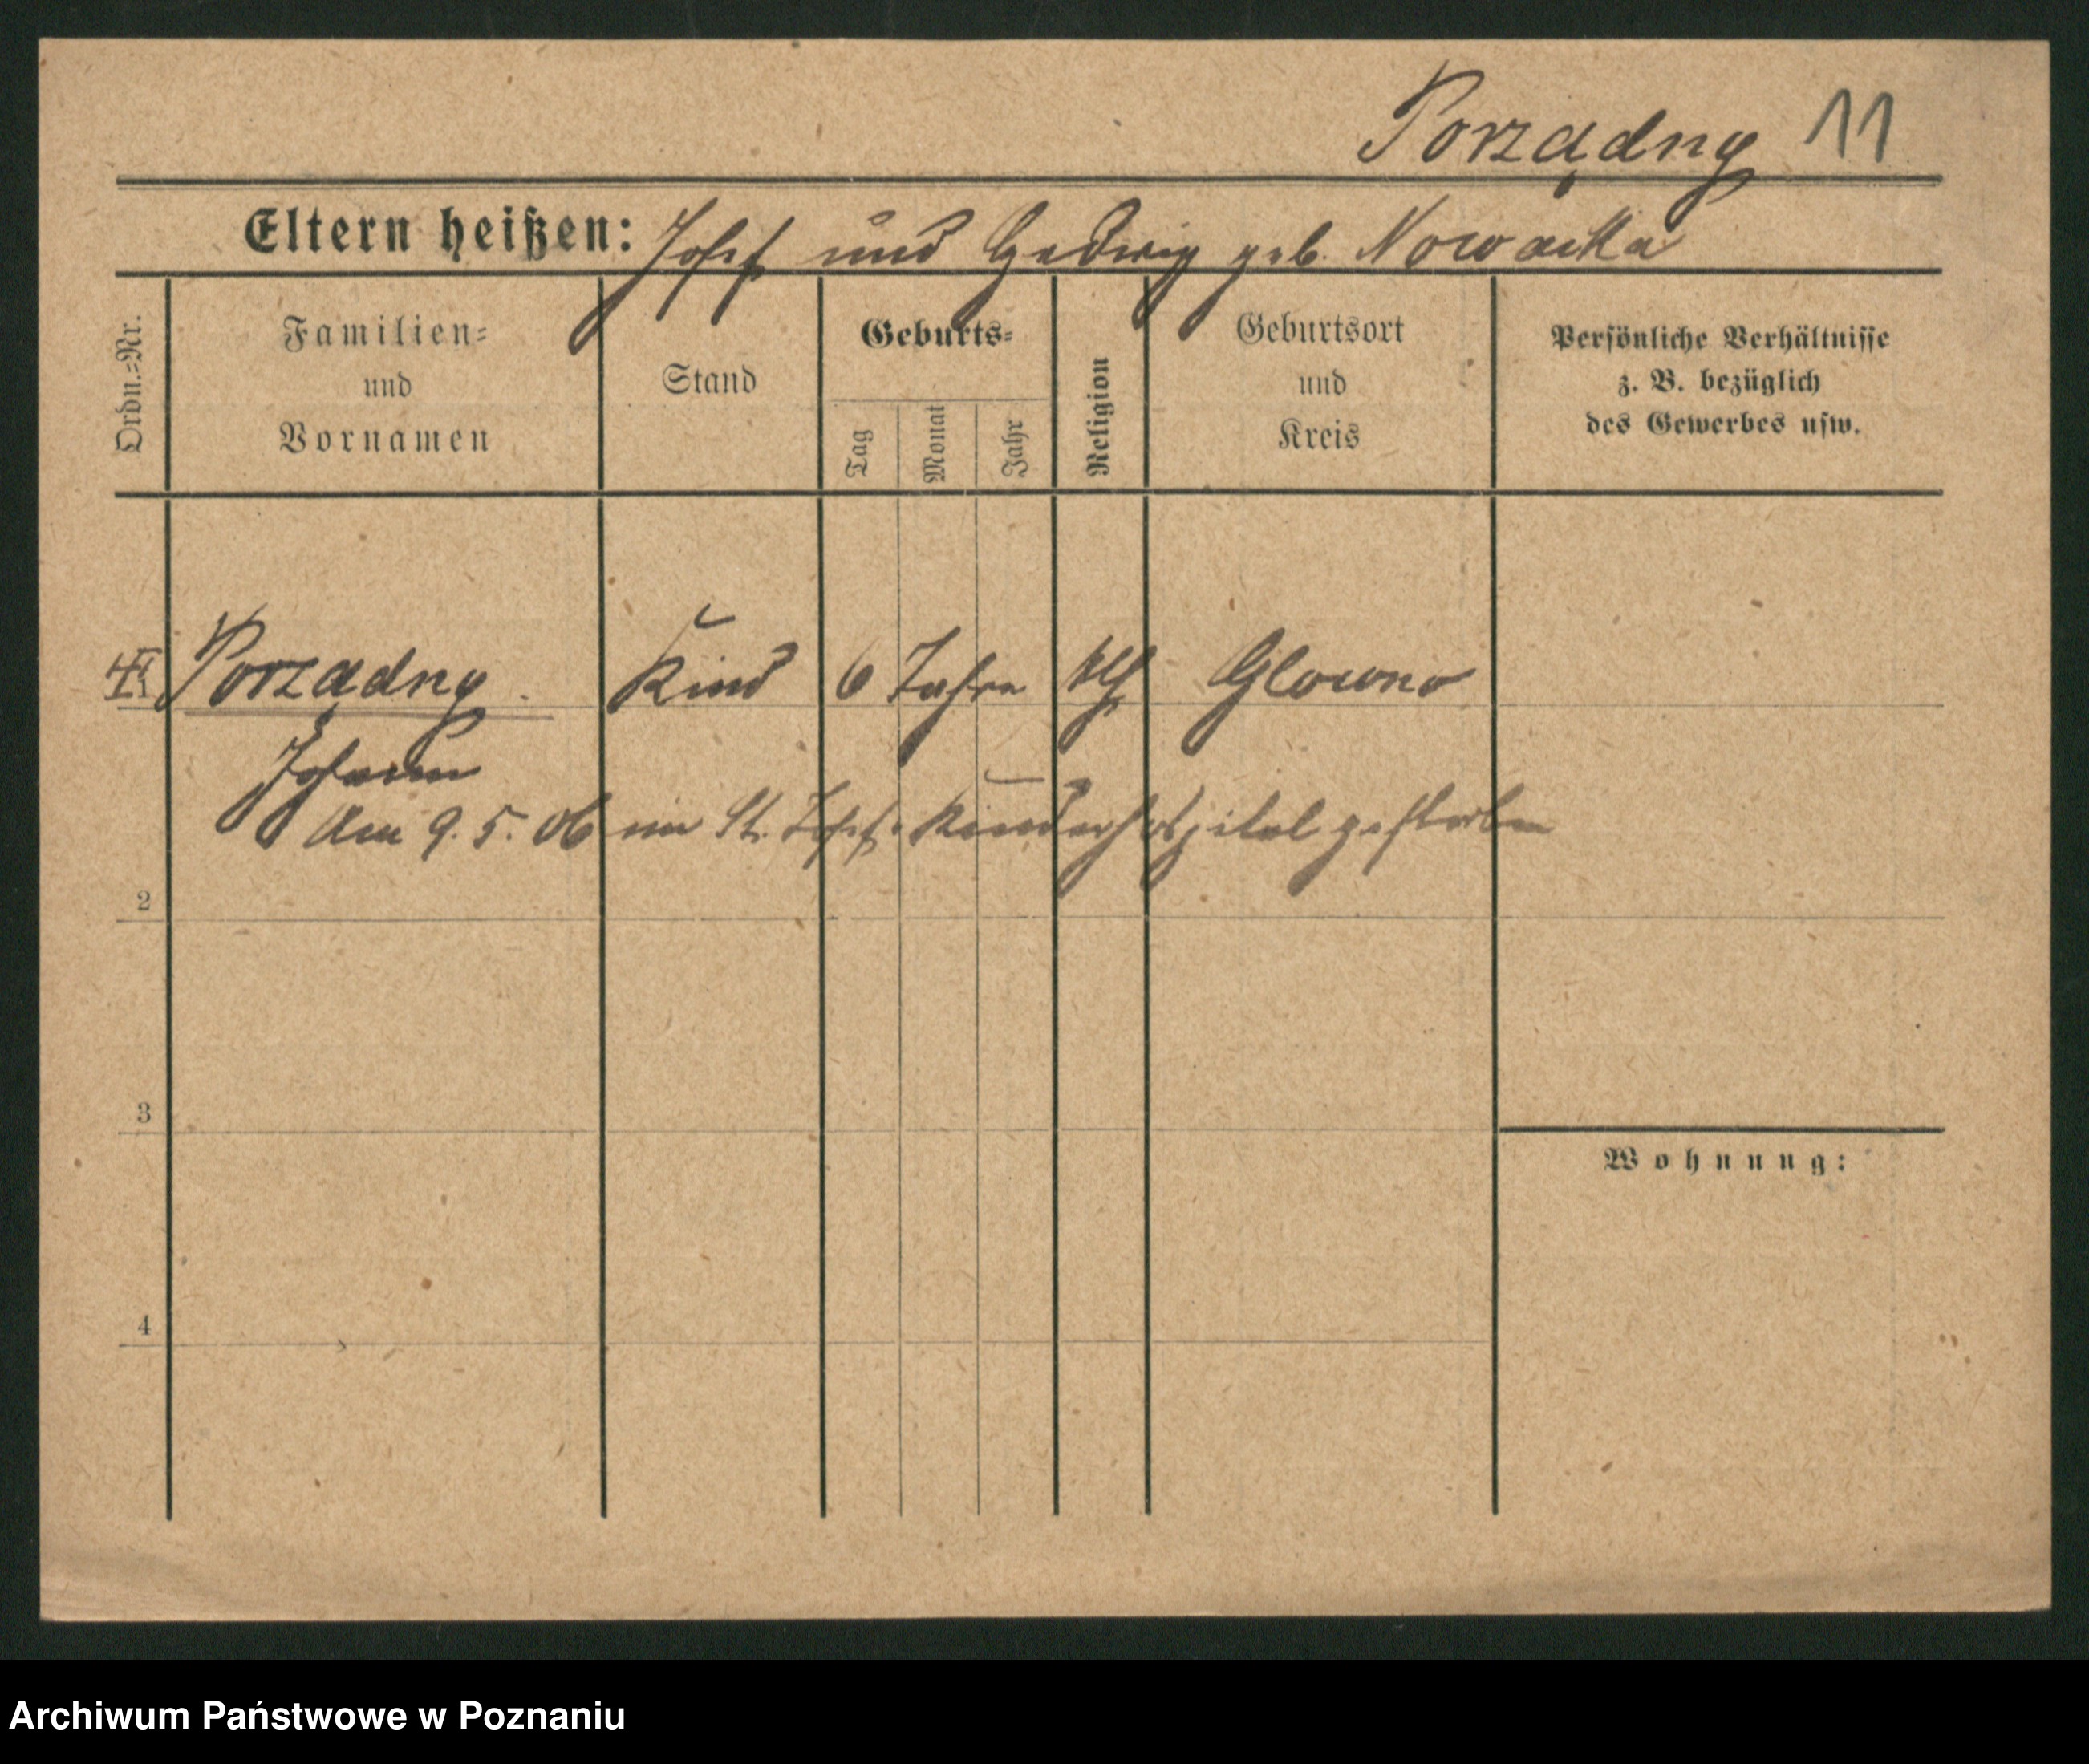 Porządny 11
Eltern heißen: Josef und Hedwig geb. Nowacka
Ordn.-Nr.
Familien-
und
Vornamen
Stand
Geburts-
Tag
Monat
Jahr
Religion
Geburtsort
und
Kreis
Persönliche Verhältnisse
z. B. bezüglich
des Gewerbes usw.
Porządny Kind 6 Jahre kth Glowno
Johann
Am 9. 5. 06 im St. Josef. Kinderhospital gestorben
2
3
Wohnung:
4
Archiwum Państwowe w Poznaniu